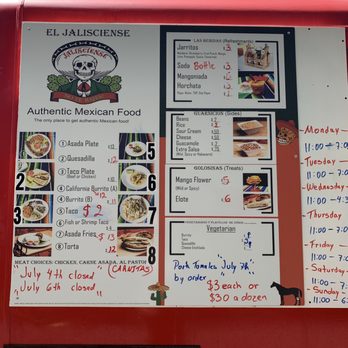 EL JALISCIENSE
JALISCIENSE
Authentic Mexican Food
The only place to get authentic Mexican food!
1 Asada Plate
2 Quesadilla 12
3 Taco Plate
(Beef or Chicken)
4 California Burrito (A)
Burrito (B) 11
5 Taco $2
6 Fish or Shrimp Taco
7 Asada Fries $13
8 Torta 12
5
2
6
3
7
8
MEAT CHOICES: CHICKEN, CARNE ASADA, AL PASTOR
(CARNITAS)
"July 4th closed
July 6th closed"
LAS BEBIDAS (Refreshments)
Jarritos 3
Soda Bottle 3
Mangoniada
Horchata
GUARNICION (Sides)
Beans
Rice
Sour Cream
Cheese
Guacamole
Extra Salsa
(Mild, Spicy or Habanero)
GOLOSINAS (Treats)
Mango Flower 5
(Mild or Spicy)
Elote 6
Vegetarian
Burrito
Taco
Quesadilla
Cheese Enchilada
Pork Tamales "July 7th"
by order
$3 each or
$30 a dozen
Monday -
11:00 - 7:0
Tuesday -
11:00 -
Wednesday -
11:00 -
Thursday
11:00 -
Friday -
11:00 -
Saturday -
11:00 -
Sunday -
11:00 - 6